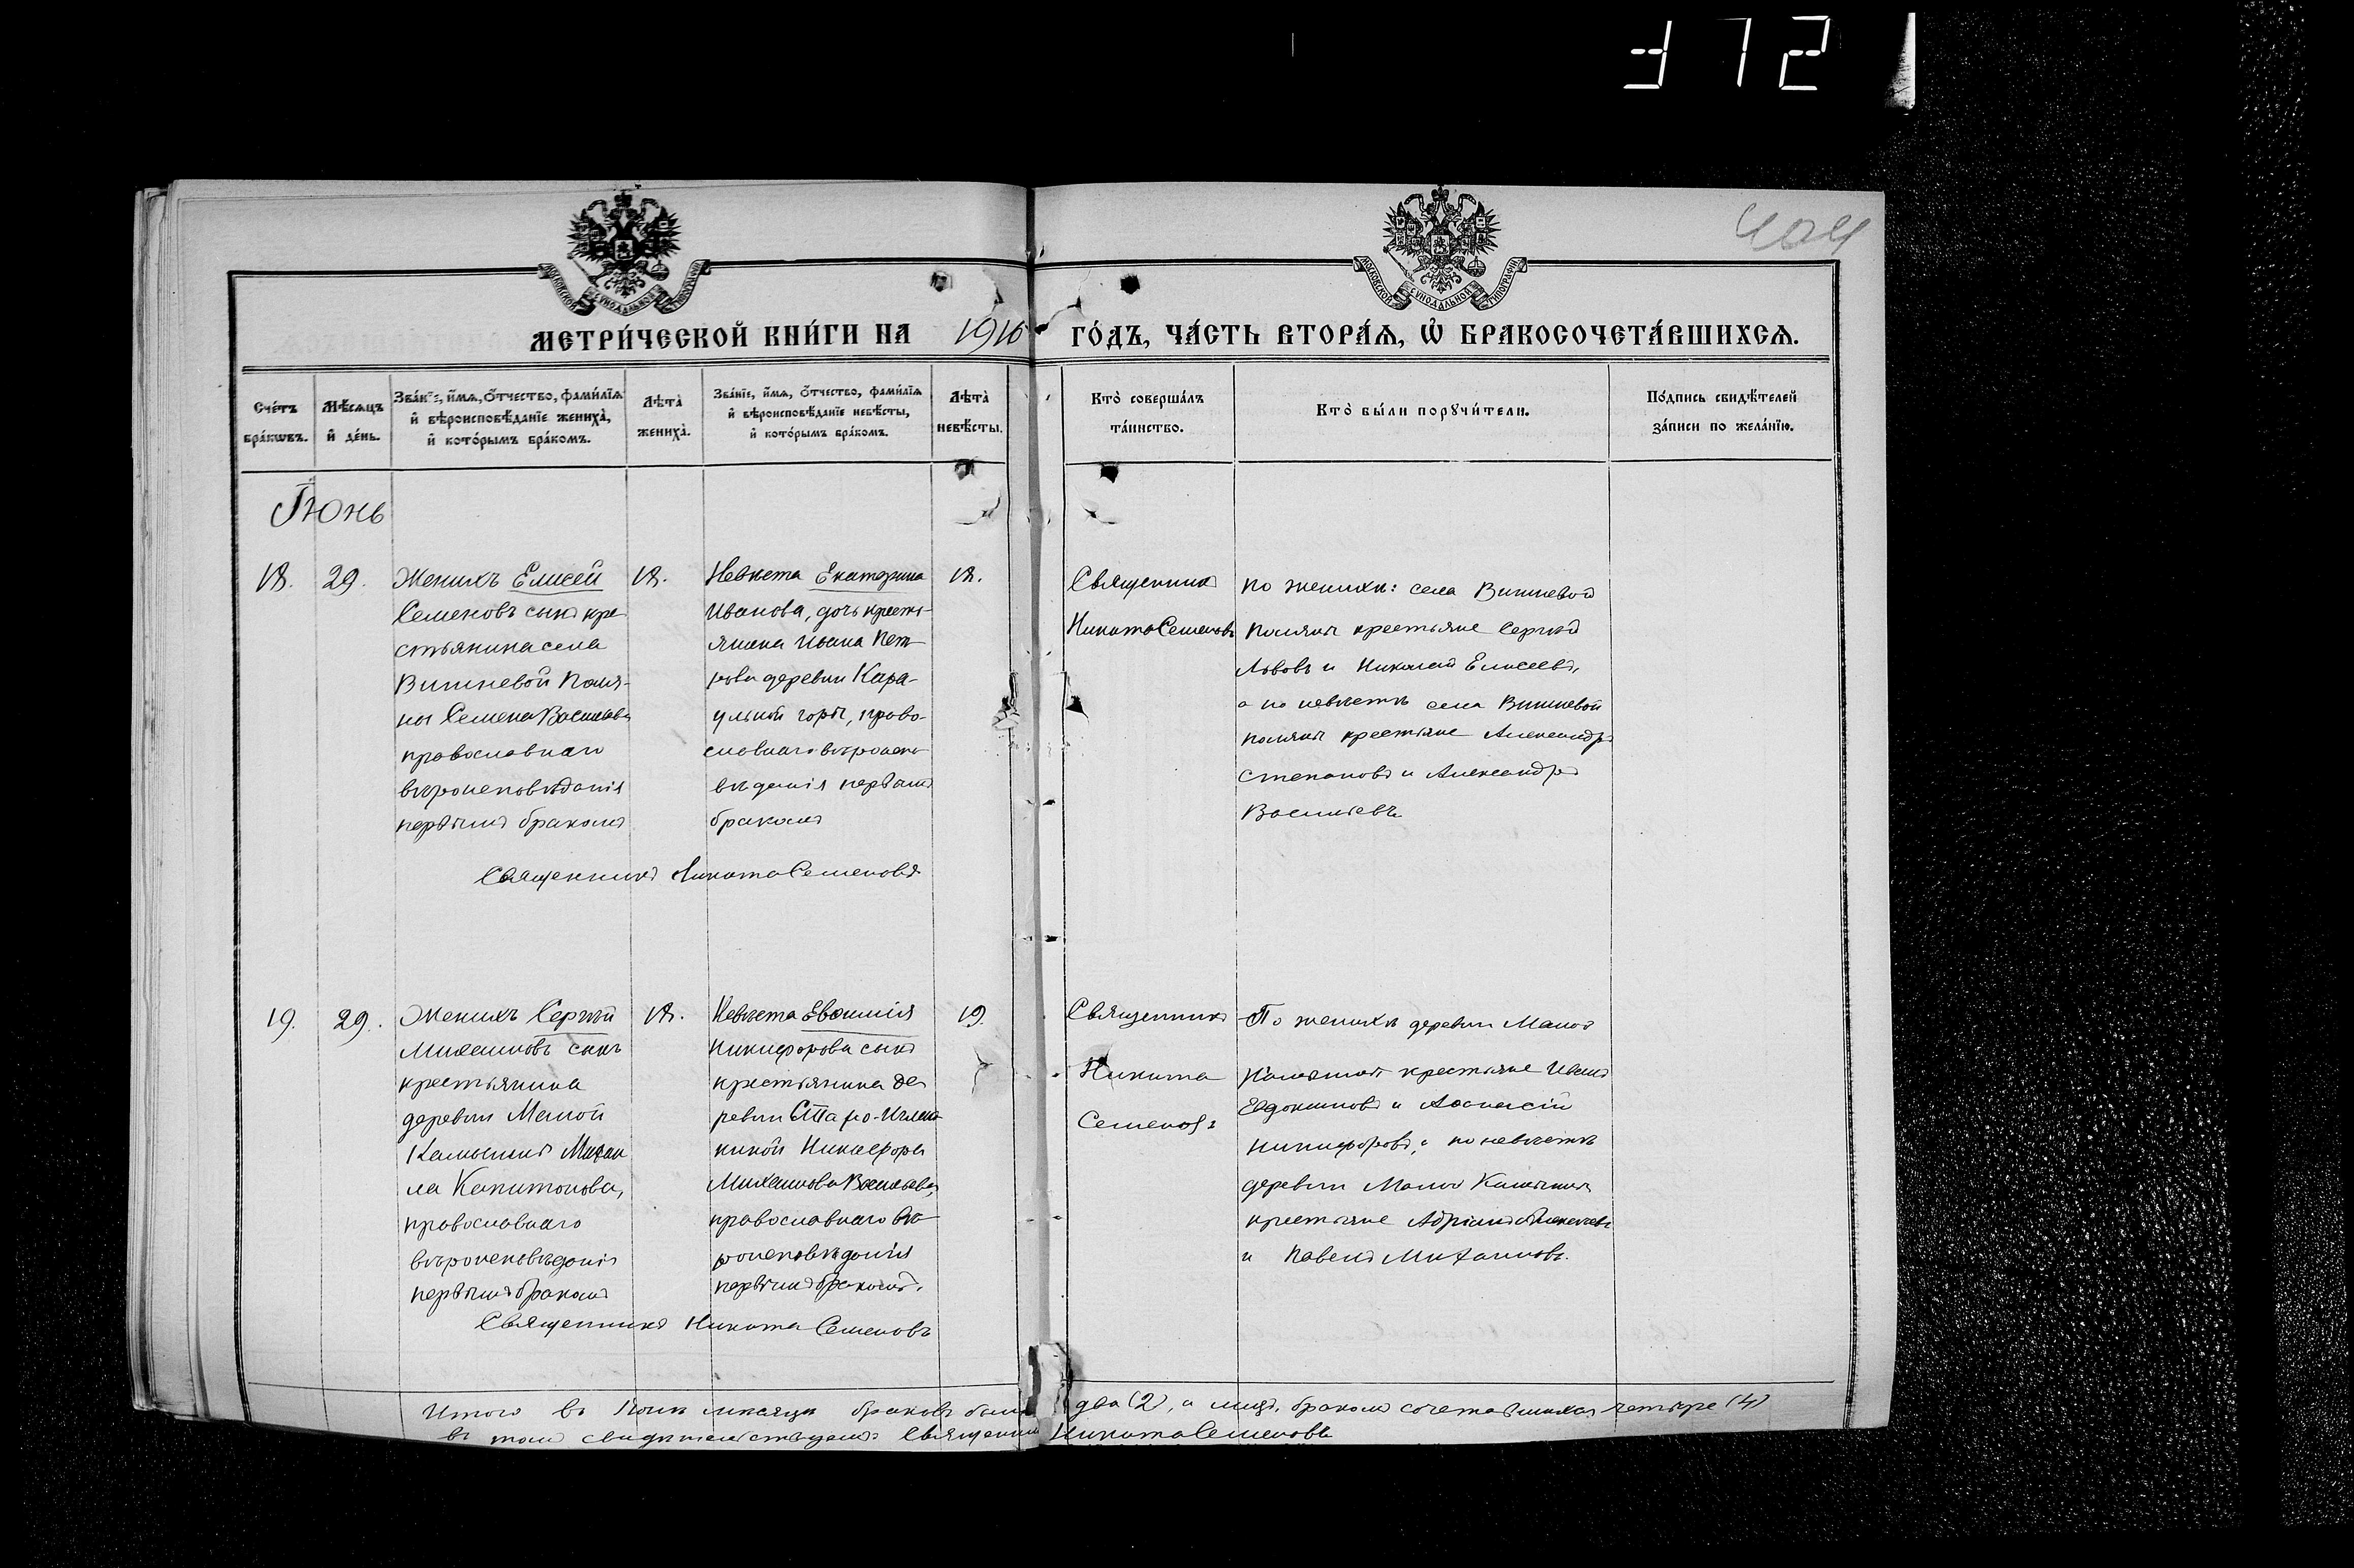 372
404
МОСКОВСКОЙ СУНОДАЛЬНОЙ ТИПОГРАФІИ
МОСКОВСКОЙ СУНОДАЛЬНОЙ ТИПОГРАФІИ
МЕТРИ́ЧЕСКОЙ КНИ́ГИ НА 1916 ГО́ДЪ, ЧА́СТЬ ВТОРА́Ѧ, Ѽ БРАКОСОЧЕТА́ВШИХСѦ.
Сче́тъ бра́кѡвъ.
Мѣ́сѧцъ и҆ де́нь.
Зва́нїе, и҆́мѧ, ѻ҆́тчество, фами́лїѧ
и҆ вѣроисповѣ́данїе жениха̀,
и҆ кото́рымъ бра́комъ.
Лѣта̀ жениха̀.
Зва́нїе, и҆́мѧ, ѻ҆́тчество, фами́лїѧ
и҆ вѣроисповѣ́данїе невѣ́сты,
и҆ кото́рымъ бра́комъ.
Лѣта̀ невѣ́сты.
Кто̀ соверша́лъ
та́инство.
Кто̀ бы́ли порꙋчи́тели.
По́дпись свидѣ́телей
за́писи по жела́нїю.
Іюнь
18.
29.
Женихъ Елисей
Семеновъ сынъ кре
стьянина села
Вишневой Поля-
ны Семена Васильева
православнаго
вѣроисповѣданія
первымъ бракомъ
18.
Невѣста Екатерина
Иванова, дочь кресть-
янина Ивана Пет
рова деревни Кара-
ульной горы, право-
славнаго вѣроиспо
вѣданія первымъ
бракомъ
18.
Священникъ
Никита Семеновъ
по женихѣ: села Вишневой
поляны крестьяне Сергѣй
Львовъ и Николай Елисеевъ,
а по невѣстѣ села Вишневой
поляны крестьяне Александръ
Степановъ и Александръ
Васильевъ
Священникъ Никита Семеновъ
19.
29.
Женихъ Сергѣй
Михаиловъ сынъ
крестьянина
деревни Малой
Камышки Михаи
ла Капитонова,
православнаго
вѣроисповѣданія
первымъ бракомъ
18.
Невѣста Евфимія
Никифорова сынъ
крестьянина де
ревни Старо-
киной Никифора
Михаилова Васильева,
православнаго вѣ
роисповѣданія
первымъ бракомъ.
19.
Священникъ
Никита
Семеновъ
По женихѣ деревни Малой
Камышки крестьяне Иванъ
Евдокимовъ и Афанасій
Никифоровъ, а по невѣстѣ
деревни Малой Камышки
крестьяне Адріанъ Алексѣевъ
и Павелъ Михаиловъ.
Священникъ Никита Семеновъ
Итого въ Іюнѣ мѣсяцѣ браковъ было два (2), а лицъ, бракомъ сочетавшихся четыре (4)
въ томъ свидѣтельствуемъ: Священникъ Никита Семеновъ